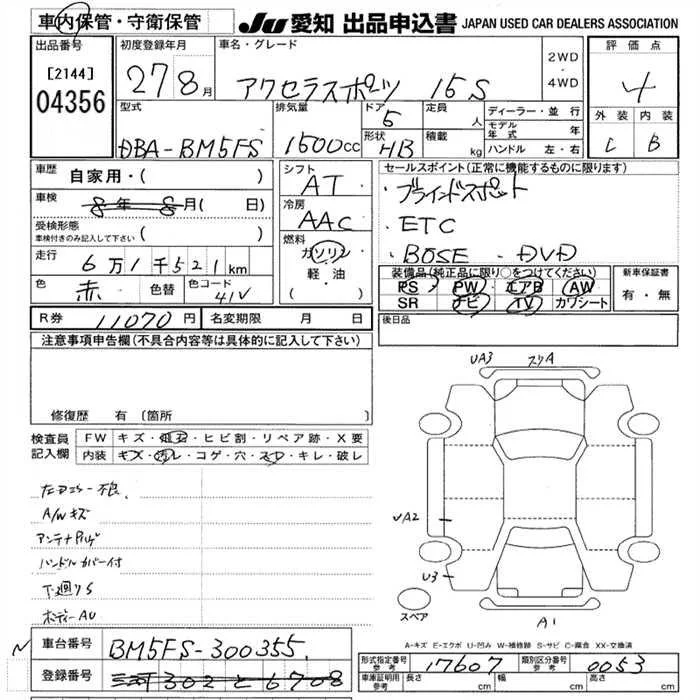 車内保管・守衛保管 JU 愛知 出品申込書 JAPAN USED CAR DEALERS ASSOCIATION
出品番号 初度登録年月 車名・グレード 2WD ・ 4WD 評価点
[2144] 27 8月 アクセラスポーツ 15S 4
04356
型式 排気量 ドア 定員 ディーラー・並行 外装 内装
DBA-BM5FS 1500cc 5 人 モデル年式 年 C B
形状 HB 積載 kg ハンドル 左・右
車歴 自家用・( )
シフト AT
セールスポイント(正常に機能するものに限ります)
車検 8年8月( 日)
冷房 AAC
・ブラインドスポット
・ETC
・BOSE ・DVD
受検形態 車検付きのみ記入して下さい ( )
燃料 ガソリン ・ 軽油 ( )
走行 6万1千521km
色 赤 色替 色コード 41V
装備品(純正品に限り○をつけてください) 新車保証書
PS PW エアB AW 有・無
SR ナビ TV カワシート
R券 11070円 名変期限 月 日
後日品
注意事項申告欄(不具合内容等は具体的に記入して下さい)
修復歴 有 〔箇所
検査員記入欄 FW キズ・飛石・ヒビ割・リペア跡・X要
内装 キズ・汚レ・コゲ・穴・スレ・キレ・破レ
A/Wキズ
ハンドルカバー付
下廻りS
ボディーAU
UA3 スリA
UA2
U3
スペア
A1
A-キズ E-エクボ U-凹み W-補修跡 S-サビ C-腐食 XX-交換済
車台番号 BM5FS-300355
登録番号 三河302と6708
形式指定番号 参考 17607 類別区分番号 参考 0053
車庫証明用 参考 長さ cm 幅 cm 高さ cm